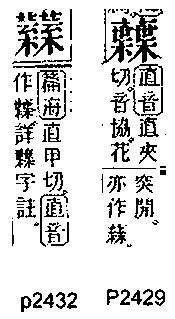 直音直夾
切音協花
突開
亦作
篇海直甲切直音
作詳字註
P2429
p2432